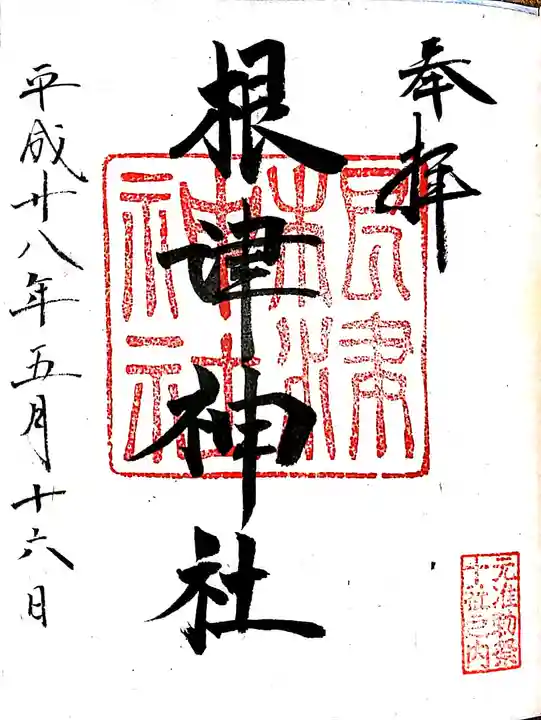 奉拝
根津神社
根津
神社
平成廿八年五月十六日
元准勅祭
十社之内